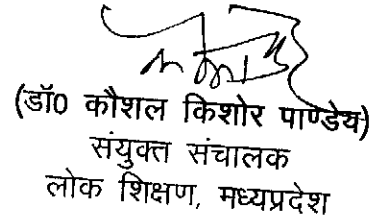 (डॉ0 कौशल किशोर पाण्डेय)
संयुक्त संचालक
लोक शिक्षण, मध्यप्रदेश